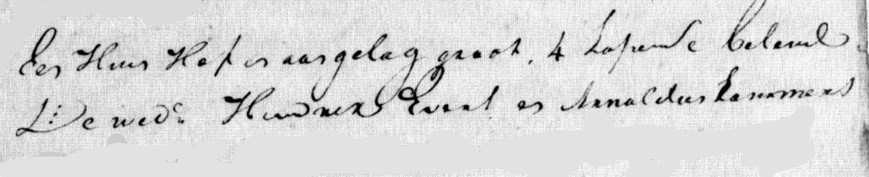 Een Huis Hof en aangelag groot. 4 Lopense belend
D: De wed:e Hendrik Evert en Arnoldus Lammers